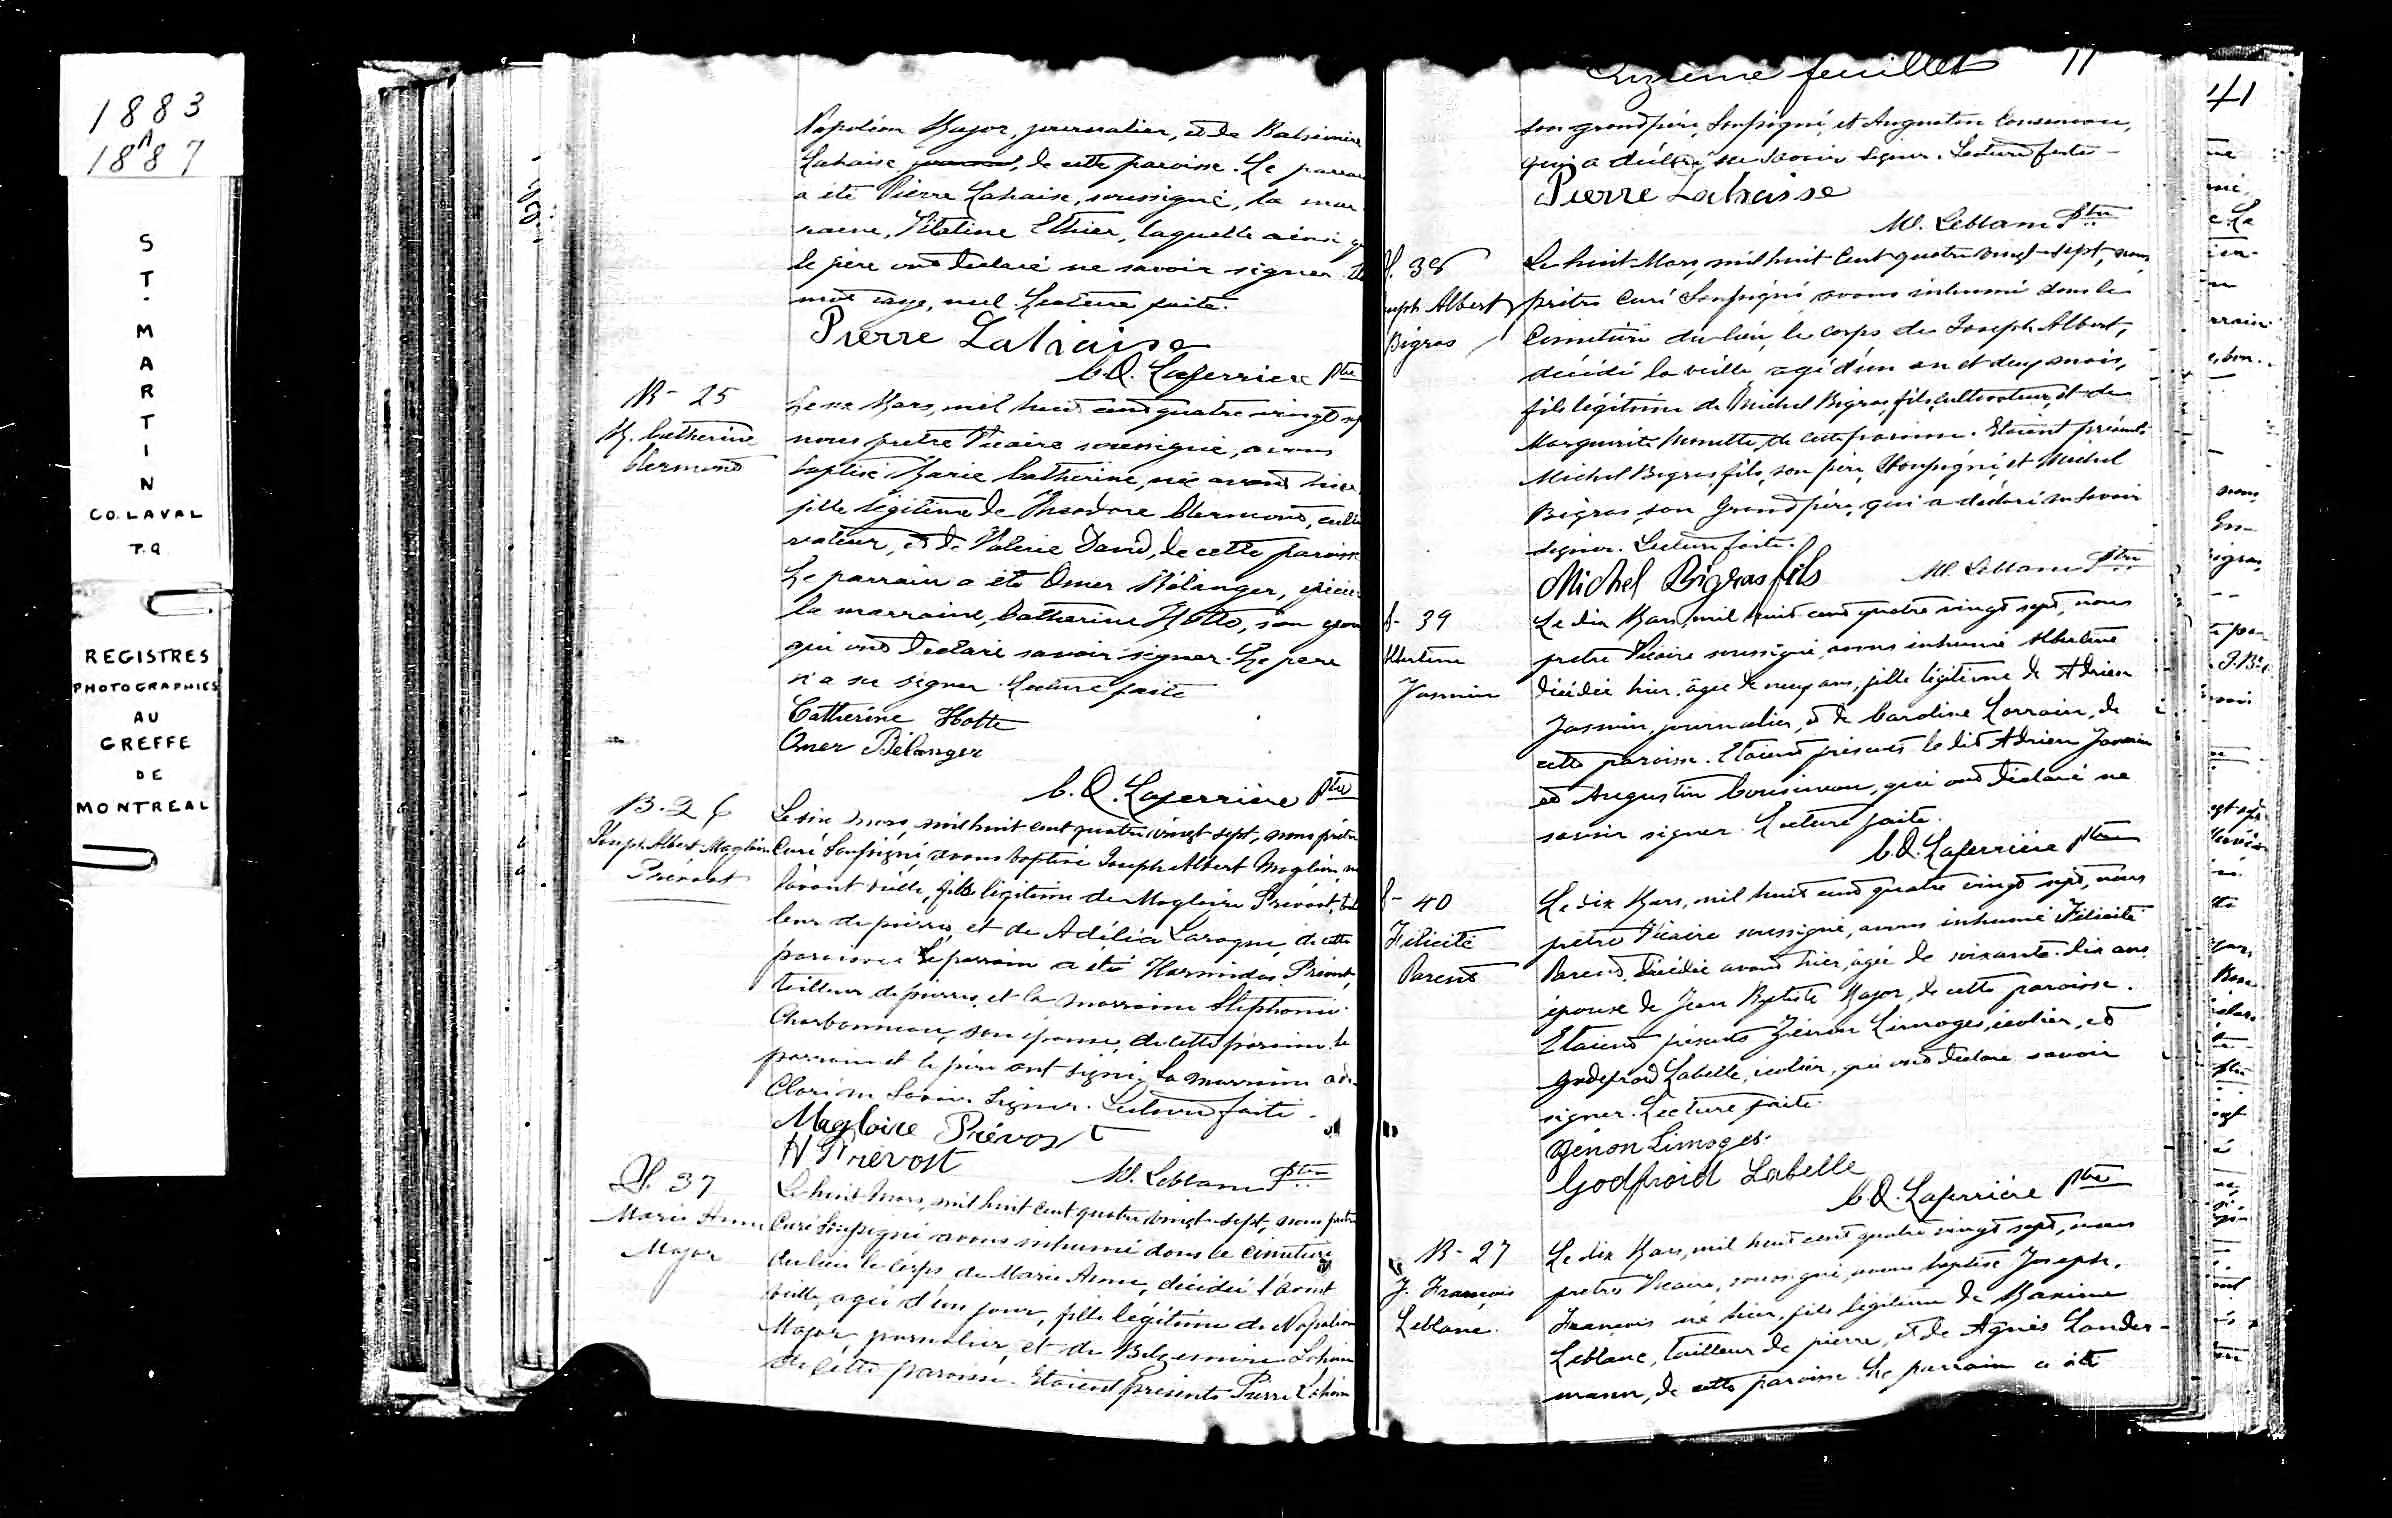 1883
à
1887
ST. MARTIN
CO. LAVAL
P.Q.
REGISTRES
PHOTOGRAPHIES
AU
GREFFE
DE
MONTREAL
Napoléon Major, journalier, et de
Lahaise de cette paroisse. Le
a été Pierre Lahaise, soussigné, la mar
raine, Ethier, laquelle ainsi
le père ont déclaré ne savoir signer
mot nul. Lecture faite.
Pierre Lahaise
C.O. Laferrière Ptre
B- 25
M. Catherine
Clermont
Le six Mars, mil huit cent quatre vingt
nous prêtre Vicaire soussigné, avons
baptisé Marie Catherine, née avant hier
fille légitime de Théodore Clermont, culti
vateur, et de Valérie David, de cette paroisse
Le parrain a été Omer Bélanger,
la marraine, Catherine Hotte, son
qui ont déclaré savoir signer. Le père
n'a su signer. Lecture faite
Catherine Hotte
Omer Bélanger
C.O. Laferrière Ptre
B. 26
Joseph Albert Magloire
Prévost
Le six mars, mil huit cent quatre vingt sept, nous prêtre
Curé Soussigné avons baptisé Joseph Albert Magloire,
l'avant veille, fils légitime de Magloire Prévost, tail
leur de pierres et de Adélia Laroque, de cette
paroisse. Le parrain a été Hormidas Prévost,
tailleur de pierres, et la marraine Stéphanie
Charbonneau, son épouse, de cette paroisse. Le
parrain et le père ont signé. La marraine a dé-
claré ne savoir signer. Lecture faite.
Magloire Prévost
H Prevost
M. Leblanc Ptre
S. 37
Marie Anne
Major
Le huit Mars, mil huit cent quatre vingt-sept, nous prêtre
Curé Soussigné avons inhumé dans le cimetière
du lieu le corps de Marie Anne, décédée l'avant
veille, agée d'un jour, fille légitime de Napoléon
Major journalier, et de Lahaise
de cette paroisse. Etaient présents Pierre Lahaise
Onzième feuillet 11
son grand père, Soussigné, et Augustin Cousineau,
qui a déclaré ne savoir signer. Lecture faite-
Pierre Lahaisse
M. Leblanc Ptre
S. 38
Joseph Albert
Bigras
Le huit Mars, mil huit cent quatre vingt-sept, nous
prêtre Curé Soussigné avons inhumé dans le
Cimetière du lieu, le corps de Joseph Albert,
décédé la veille agé d'un an et deux mois,
fils légitime de Michel Bigras, fils, cultivateur, et de
Marguerite de cette paroisse. Etaient présents
Michel Bigras, fils, son père, Soussigné, et Michel
Bigras, son Grand père, qui a déclaré ne savoir
signer. Lecture faite.
Michel Bigras fils
M. Leblanc Ptre
S- 39
Albertine
Jasmin
Le dix Mars, mil huit cent quatre vingt sept, nous
prêtre Vicaire soussigné, avons inhumé Albertine
décédée hier, âgée de neuf ans, fille légitime de Adrien
Jasmin, journalier, et de Caroline Lorrain, de
cette paroisse. Etaient présents le dit Adrien Jasmin
et Augustin Cousineau, qui ont déclaré ne
savoir signer. Lecture faite.
C.O. Laferrière Ptre
S- 40
Félicité
Parent
Le dix Mars, mil huit cent quatre vingt sept, nous
prêtre Vicaire soussigné, avons inhumé Félicité
Parent, décédée avant hier, agée de soixante-dix ans,
épouse de Jean Baptiste Major, de cette paroisse.
Etaient présents Zénon Limoges, écolier, et
Godefroid Labelle, écolier, qui ont déclaré savoir
signer. Lecture faite.
Zénon Limoges.
Godfroid Labelle
C.O. Laferrière Ptre
B- 27
J. François
Leblanc.
Le dix Mars, mil huit cent quatre vingt sept, nous
prêtre Vicaire, soussigné, avons baptisé Joseph,
François né hier, fils légitime de Maxime
Leblanc, tailleur de pierre, et de Agnès Lander-
mann, de cette paroisse. Le parrain a été
41